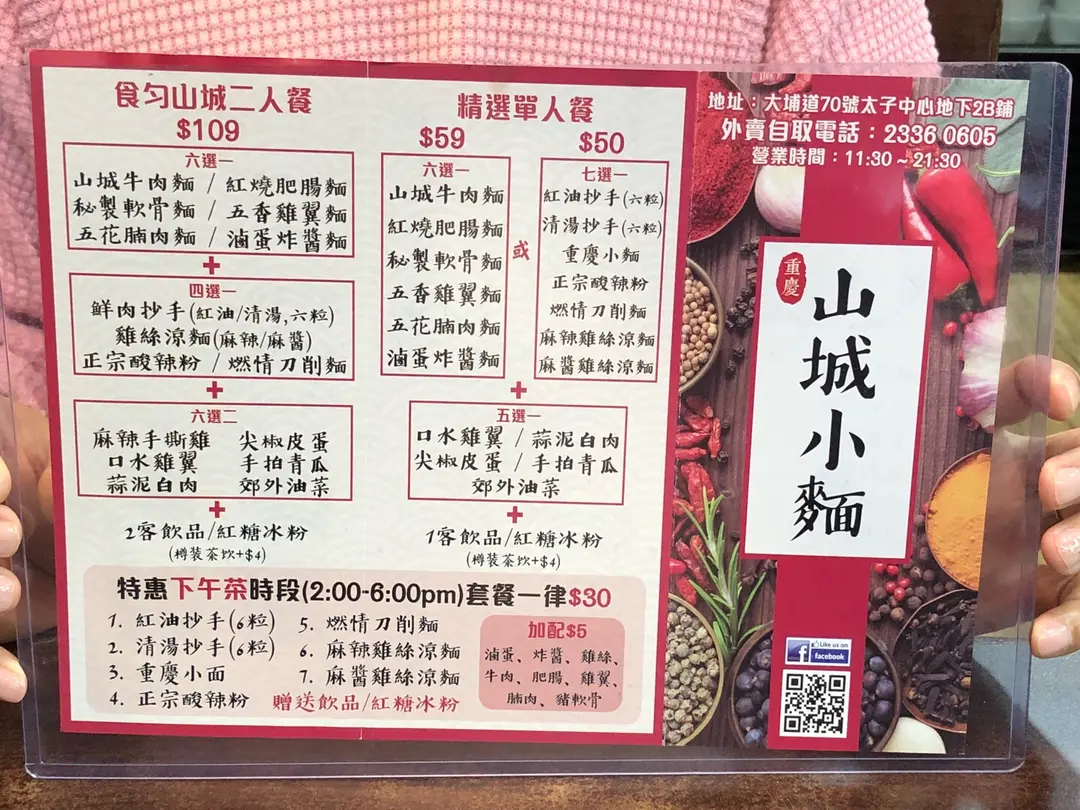 食勻山城二人餐
$109
六選一
山城牛肉麵 / 紅燒肥腸麵
秘製軟骨麵 / 五香雞翼麵
五花腩肉麵 / 滷蛋炸醬麵
+
四選一
鮮肉抄手(紅油/清湯,六粒)
雞絲涼麵(麻辣/麻醬)
正宗酸辣粉 / 燃情刀削麵
+
六選二
麻辣手撕雞 尖椒皮蛋
口水雞翼 手拍青瓜
蒜泥白肉 郊外油菜
+
2客飲品/紅糖冰粉
(樽裝茶饮+$4)
精選單人餐
$59
六選一
山城牛肉麵
紅燒肥腸麵
秘製軟骨麵
五香雞翼麵
五花腩肉麵
滷蛋炸醬麵
或
$50
七選一
紅油抄手(六粒)
清湯抄手(六粒)
重慶小麵
正宗酸辣粉
燃情刀削麵
麻辣雞絲涼麵
麻醬雞絲涼麵
+
五選一
口水雞翼 / 蒜泥白肉
尖椒皮蛋 / 手拍青瓜
郊外油菜
+
1客飲品/紅糖冰粉
(樽裝茶饮+$4)
特惠下午茶時段(2:00-6:00pm)套餐一律$30
1. 紅油抄手(6粒)
2. 清湯抄手(6粒)
3. 重慶小面
4. 正宗酸辣粉
5. 燃情刀削麵
6. 麻辣雞絲涼麵
7. 麻醬雞絲涼麵
贈送飲品/紅糖冰粉
加配$5
滷蛋、炸醬、雞絲、
牛肉、肥腸、雞翼、
腩肉、豬軟骨
地址：大埔道70號太子中心地下2B鋪
外賣自取電話：2336 0605
營業時間：11:30 ~ 21:30
重慶
山城小麵
Like us on
facebook